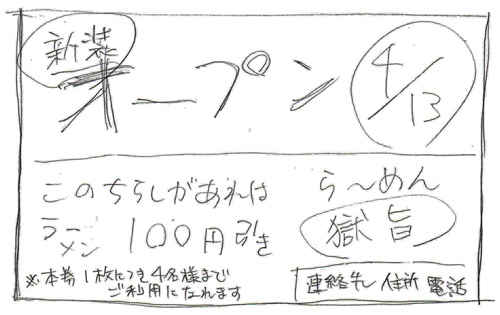 新装
オープン
4/13
このちらしがあれば
ラーメン 100円引き
※本券1枚につき4名様まで
ご利用になれます
らーめん
獄旨
連絡先 住所 電話